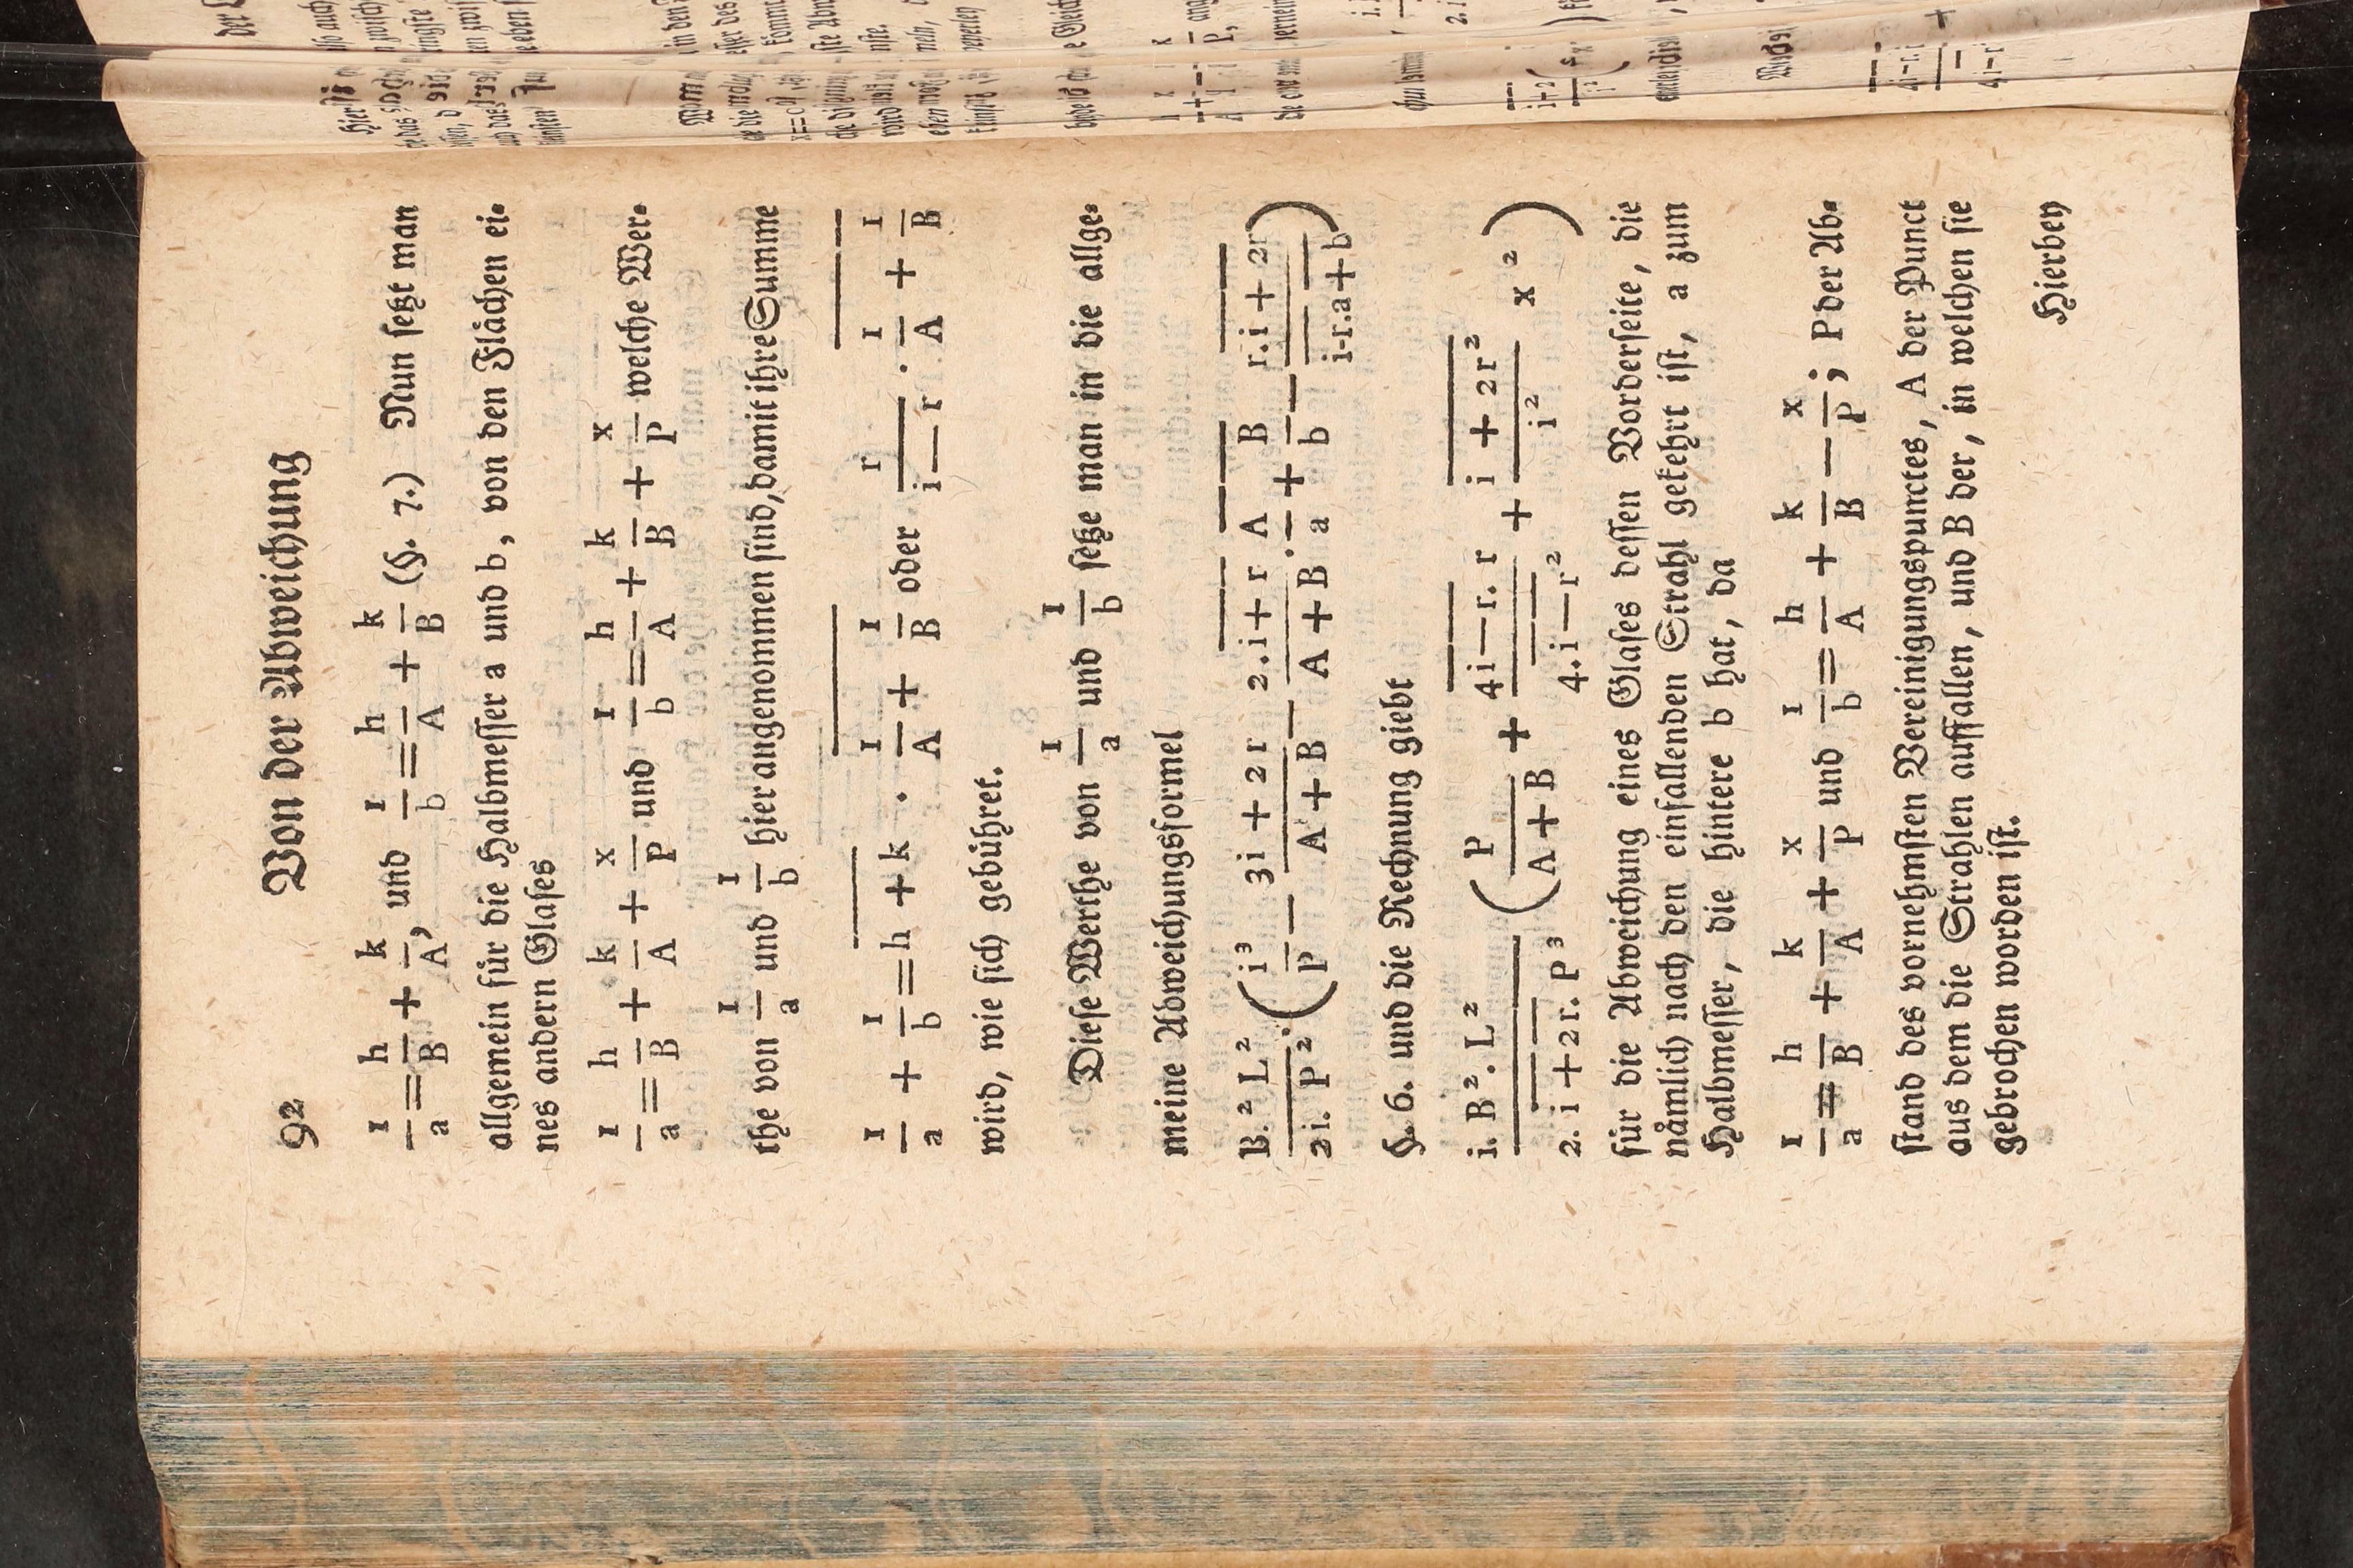 92 Von der Abweichung
1/a = h/B + k/A, und 1/b = h/A + k/B (§. 7.) Nun setzt man
allgemein für die Halbmesser a und b, von den Flächen ei-
nes andern Glases
1/a = h/B + k/A + x/P und 1/b = h/A + k/B + x/P welche Wer-
the von 1/a und 1/b hier angenommen sind, damit ihre Summe
1/a + 1/b = h + k . 1/A + 1/B oder r/i—r . 1/A + 1/B
wird, wie sich gebühret.
Diese Werthe von 1/a und 1/b setze man in die allge-
meine Abweichungsformel
B.² L²/2i. P² . (i³/P — 3i + 2r/A + B — 2.i + r/A + B . A/a + B/b — r.i + 2r/i-r.a+b)
§. 6. und die Rechnung giebt
i. B². L²/2. i + 2r. P³ (P/A + B + 4i—r. r/4.i—r² + i + 2r²/i² x²)
für die Abweichung eines Glases dessen Vorderseite, die
nåmlich nach den einfallenden Strahl gekehrt ist, a zum
Halbmesser, die hintere b hat, da
1/a = h/B + k/A + x/P und 1/b = h/A + k/B — x/P; P der Ab-
stand des vornehmsten Vereinigungspunctes, A der Punct
aus dem die Strahlen auffallen, und B der, in welchen sie
gebrochen worden ist.
Hierbey